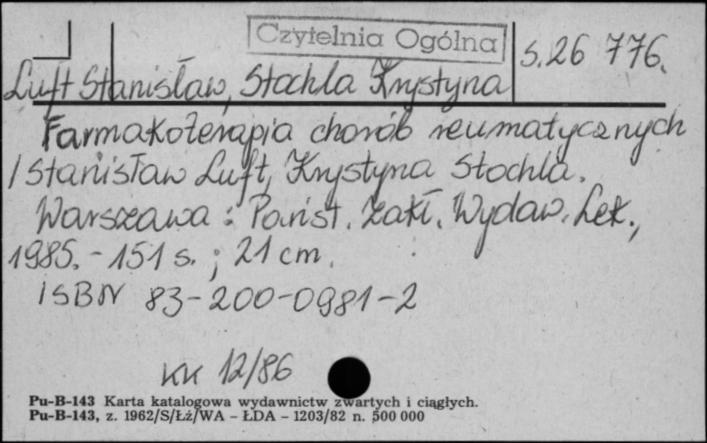 Czytelnia Ogólna
S.26 776.
Luft Stanisław, Stachla Krystyna
Farmakoterapia chorób reumatycznych
/ Stanisław Luft, Krystyna Stachla.
Warszawa : Państ. Zakł. Wydaw. Lek.,
1985. - 151 s. ; 21 cm.
ISBN 83-200-0981-2
KK 12/86
Pu-B-143 Karta katalogowa wydawnictw zwartych i ciągłych.
Pu-B-143, z. 1962/S/Łż/WA - ŁDA - 1203/82 n. 500 000